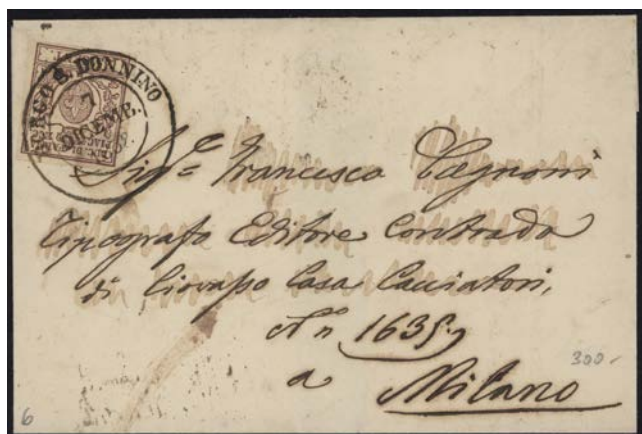 BORGO S. DONNINO
7
DICEMB.
Sig.e Francesco Pagnoni
Tipografo Editore Contrada
di Ciovasso Casa Cacciatori,
N.o 1635.
a
Milano
300.-
6